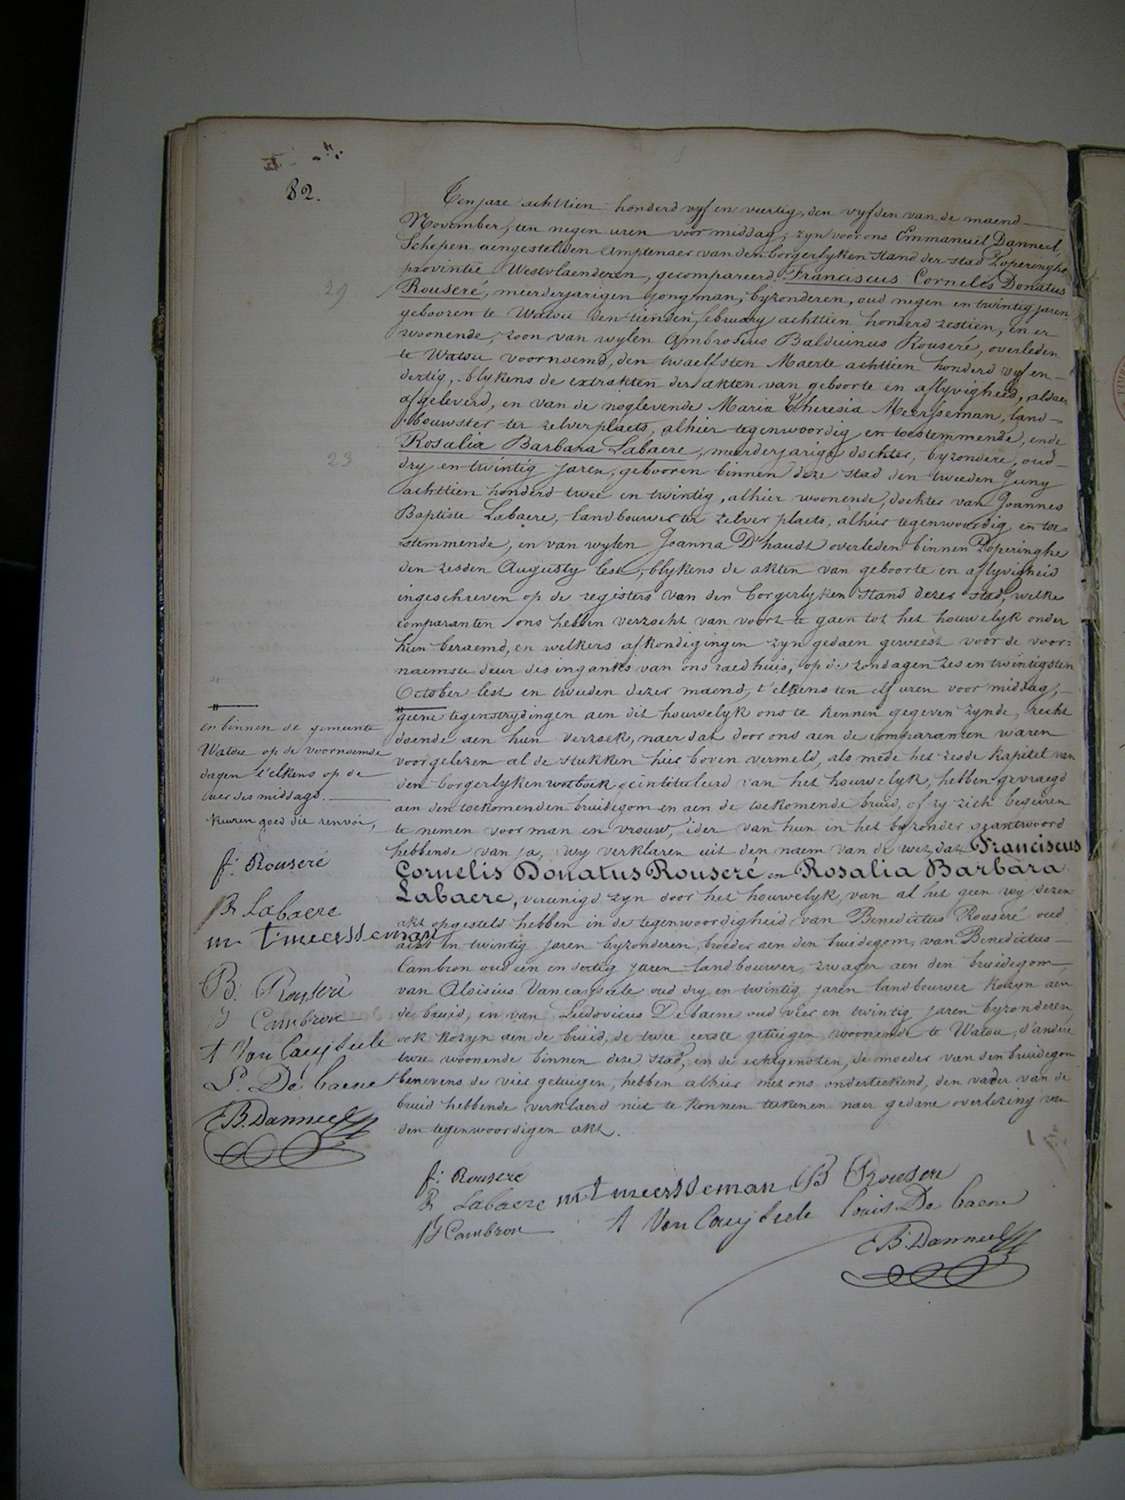 82.
Ten jare achttien honderd vyf en veertig, den vyfden van de maend
November, ten negen uren voor middag, zyn voor ons Emmanuel Danneel,
Schepen aengestelden amptenaer van den borgerlyken stand der stad Poperinghe,
provintie Westvlaenderen, gecompareerd: Franciscus Cornelis Donatus
29
Rouseré, meerderjarigen jongman, byzonderen, oud negen en twintig jaren,
gebooren te Watou den tienden february achttien honderd zestien, en er
woonende, zoon van wylen Ambrosius Balduinus Rouseré, overleden
te Watou voornoemd, den twaelfsten Maerte achttien honderd vyf en
dertig, blykens de extrakten der akten van geboorte en aflyvigheid, aldaer
afgeleverd, en van de noglevende Maria Theresia Meersseman, land-
bouwster ter zelver plaets, alhier tegenwoordig en toestemmende, ende
23
Rosalia Barbara Labaere, meerderjarige dochter, byzondere, oud
dry en twintig jaren, gebooren binnen deze stad den tweeden Juny
achttien honderd twee en twintig, alhier woonende, dochter van Joannes
Baptiste Labaere, landbouwer ter zelver plaets, alhier tegenwoordig en toe
stemmende, en van wylen Joanna D'haudt overleden binnen Poperinghe
den zesden Augusty lest, blykens de akten van geboorte en aflyvigheid
ingeschreven op de registers van den borgerlyken stand dezer stad, welke
comparanten ons hebben verzocht van voort te gaen tot het houwelyk onder
hun beraemd, en welkers afkondigingen zyn gedaen geweest voor de voor-
naemste deur des ingangs van ons raedhuis, op de zondagen zes en twintigsten
October lest en tweeden dezer maend, t'elkens ten elf uren voor middag,
geene tegenstrydingen aen dit houwelyk ons te kennen gegeven zynde, recht
doende aen hun verzoek, naer dat door ons aen de comparanten waren
voorgelezen al de stukken hier boven vermeld, als mede het zesde kapitel van
den borgerlyken wetboek geintituleerd van het houwelyk, hebben gevraegd
aen den toekomenden bruidegom en aen de toekomende bruid, of zy zich begeeren
te nemen voor man en vrouw, ider van hun in het byzonder geantwoord
hebbende van ja, wy verklaren uit den naem van de wet, dat Franciscus
Cornelis Donatus Rouseré en Rosalia Barbara
Labaere, vereenigd zyn door het houwelyk, van al het geen wy dezen
akt opgesteld hebben in de tegenwoordigheid van Benedictus Rouseré oud
acht en twintig jaren byzonderen, broeder aen den bruidegom, van Benedictus
Cambron oud een en dertig jaren landbouwer, zwager aen den bruidegom,
van Aloisius Vancayseele oud dry en twintig jaren landbouwer kozyn aen
de bruid, en van Ludovicus Debaene oud vier en twintig jaren byzonderen
ook kozyn aen de bruid, de twee eerste getuigen woonende te Watou, d'andere
twee woonende binnen deze stad, en de echtgenoten, de moeder van den bruidegom
benevens de vier getuigen, hebben alhier met ons onderteekend, den vader van de
bruid hebbende verklaerd niet te konnen teekenen naer gedane overlezing van
den tegenwoordigen akt.
en binnen de gemeente
Watou op de voornoemde
dagen t'elkens op de
uer des middags.
keuren goed die renvoi,
f: Rouseré
R Labaere
m t meersseman
B: Rouseré
Cambron
A Van Cayseele
L. De baene
E B. Danneel
f: Rouseré
R Labaere m t meersseman B Rouseré
Cambron A Van Cayseele Louis De baene
E B. Danneel